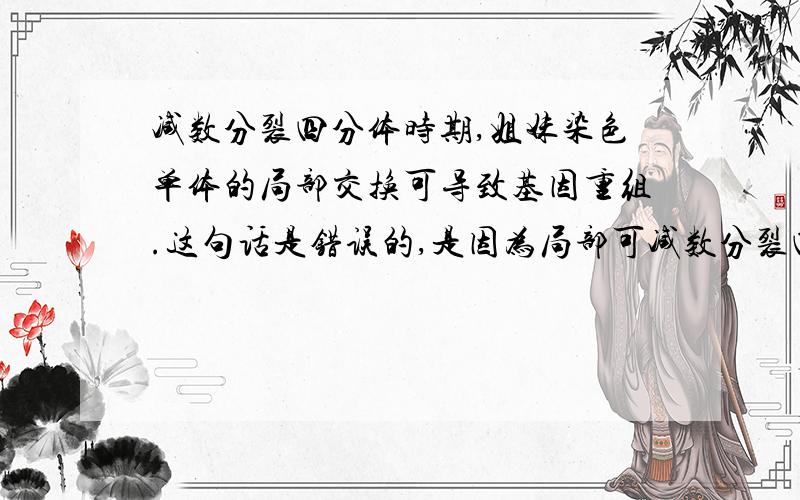 减数分裂四分体时期,姐妹染色
单体的局部交换可导致基因重组
.这句话是错误的,是因为局部可减数分裂